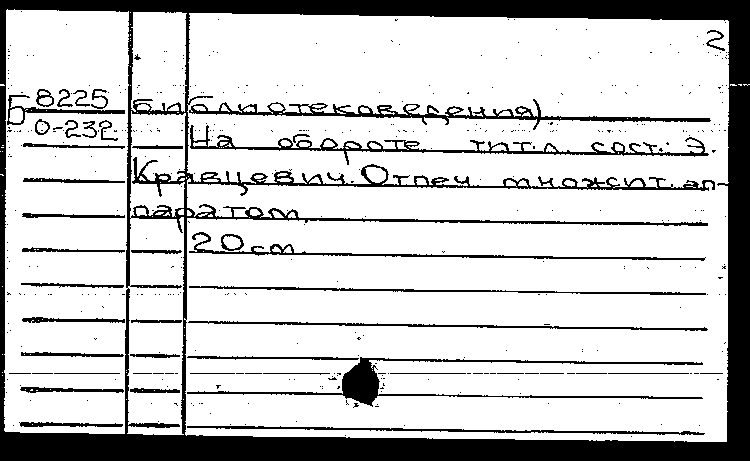 2
Б 8225 библиотековедения).
0-232 На обороте тит.л. сост.: Э.
Кравцевич. Отпеч. множит. ап-
паратом.
20 см.